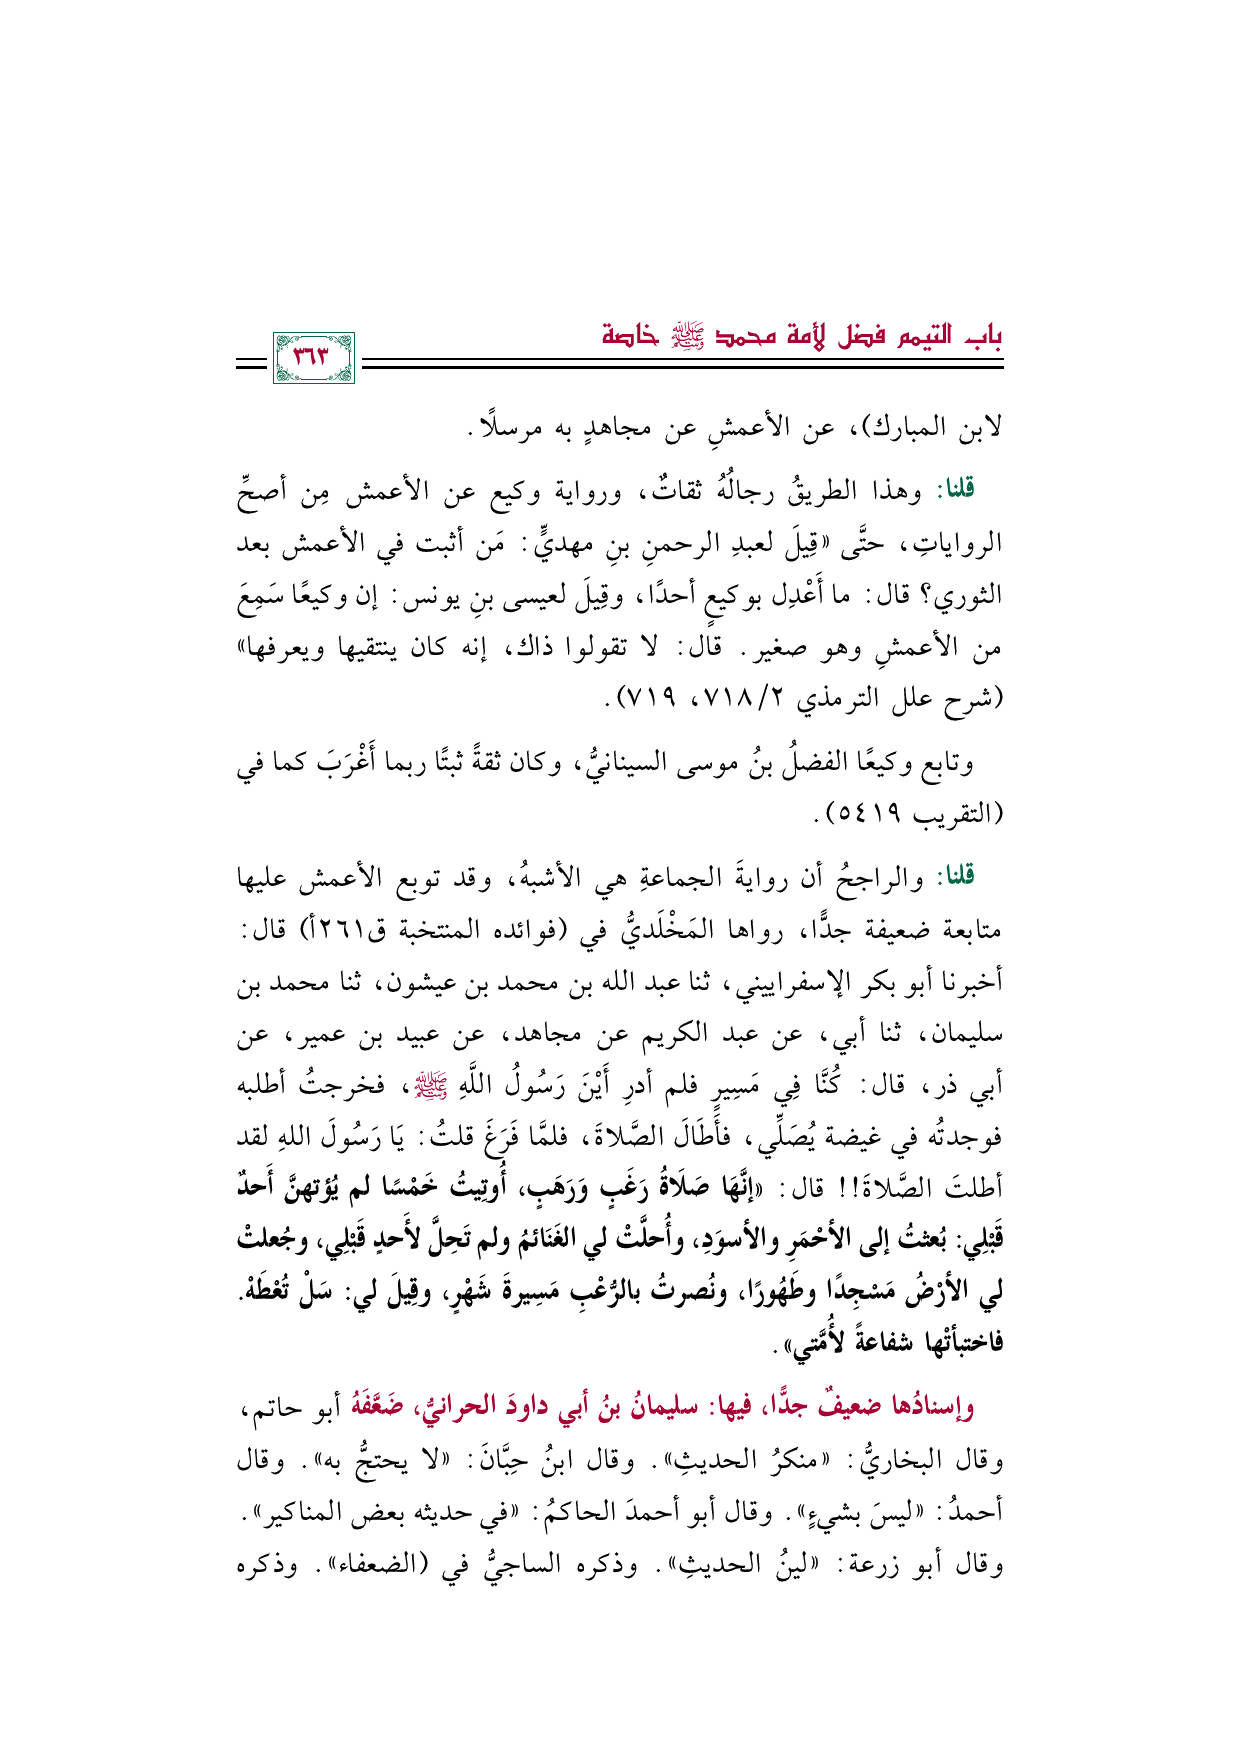 باب التيمم فضل لأمة محمد ﷺ خاصة
٣٦٣
لابن المبارك)، عن الأعمشِ عن مجاهدٍ به مرسلًا.
قلنا: وهذا الطريقُ رجالُهُ ثقاتٌ، ورواية وكيع عن الأعمش مِن أصحِّ
الرواياتِ، حتَّى «قِيلَ لعبدِ الرحمنِ بنِ مهديٍّ: مَن أثبت في الأعمش بعد
الثوري؟ قال: ما أَعْدِل بوكيعٍ أحدًا، وقِيلَ لعيسى بنِ يونس: إن وكيعًا سَمِعَ
من الأعمشِ وهو صغير. قال: لا تقولوا ذاك، إنه كان ينتقيها ويعرفها»
(شرح علل الترمذي ٢/ ٧١٨، ٧١٩).
وتابع وكيعًا الفضلُ بنُ موسى السينانيُّ، وكان ثقةً ثبتًا ربما أَغْرَبَ كما في
(التقريب ٥٤١٩).
قلنا: والراجحُ أن روايةَ الجماعةِ هي الأشبهُ، وقد توبع الأعمش عليها
متابعة ضعيفة جدًّا، رواها المَخْلَديُّ في (فوائده المنتخبة ق٢٦١أ) قال:
أخبرنا أبو بكر الإسفراييني، ثنا عبد الله بن محمد بن عيشون، ثنا محمد بن
سليمان، ثنا أبي، عن عبد الكريم عن مجاهد، عن عبيد بن عمير، عن
أبي ذر، قال: كُنَّا فِي مَسِيرٍ فلم أدرِ أَيْنَ رَسُولُ اللَّهِ ﷺ، فخرجتُ أطلبه
فوجدتُه في غيضة يُصَلِّي، فأَطَالَ الصَّلاةَ، فلمَّا فَرَغَ قلتُ: يَا رَسُولَ اللهِ لقد
أطلتَ الصَّلاةَ!! قال: «إنَّهَا صَلَاةُ رَغَبٍ وَرَهَبٍ، أُوتِيتُ خَمْسًا لم يُؤتهنَّ أَحدٌ
قَبْلِي: بُعثتُ إلى الأحْمَرِ والأسوَدِ، وأُحلَّتْ لي الغَنَائمُ ولم تَحِلَّ لأَحدٍ قَبْلِي، وجُعلتْ
لي الأرْضُ مَسْجِدًا وطَهُورًا، ونُصرتُ بالرُّعْبِ مَسِيرةَ شَهْرٍ، وقِيلَ لي: سَلْ تُعْطَهْ.
فاختبأتْها شفاعةً لأُمَّتي».
وإسنادُها ضعيفٌ جدًّا، فيها: سليمانُ بنُ أبي داودَ الحرانيُّ، ضَعَّفَهُ أبو حاتم،
وقال البخاريُّ: «منكرُ الحديثِ». وقال ابنُ حِبَّانَ: «لا يحتجُّ به». وقال
أحمدُ: «ليسَ بشيءٍ». وقال أبو أحمدَ الحاكمُ: «في حديثه بعض المناكير».
وقال أبو زرعة: «لينُ الحديثِ». وذكره الساجيُّ في (الضعفاء». وذكره